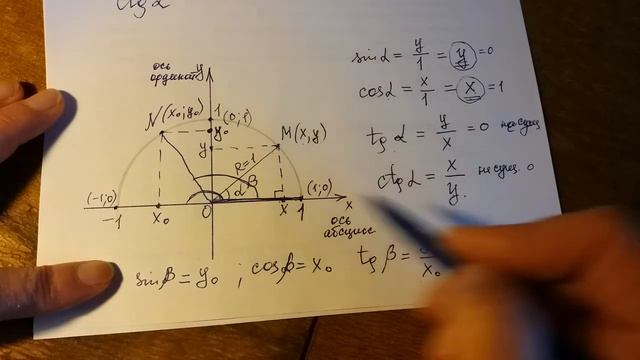 ctg α
ось
ординат
y
N(x₀;y₀)
1
(0;1)
y₀
y
M(x;y)
R=1
α
β
(-1;0)
(1;0)
-1
x₀
0
x
1
x
ось
абсцисс
sinα = y/1 = y = 0
cosα = x/1 = x = 1
tg α = y/x = 0 не сущ
ctg α = x/y. не сущ. 0
sinβ = y₀ ; cosβ = x₀
tg β = /x₀